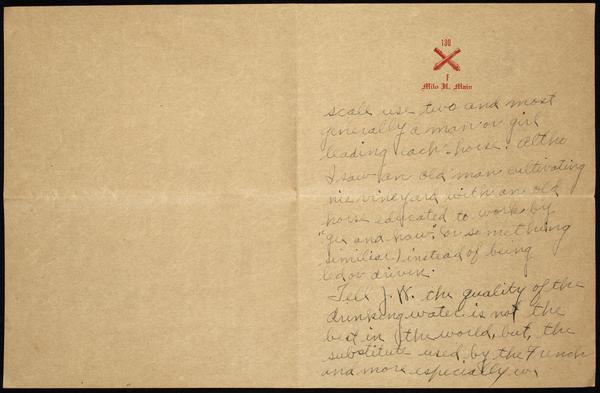 130
F
Milo H. Main
scale use two and most
generally a man or girl
leading each horse. Altho
I saw an old man cultivating
his vineyard with an old
horse educated to work by
"gee and haw" (or something
similiar) instead of being
led or driven.
Tell J. W. the quality of the
drinking water is not the
best in the world, but, the
substitute used by the French
and more especially